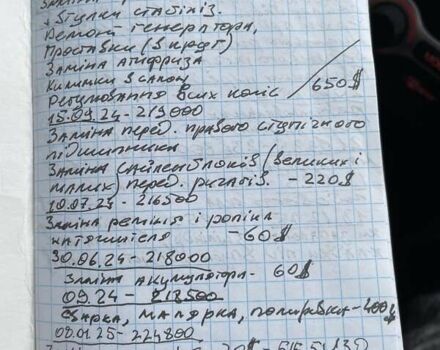 + втулки стабіліз.
Ремонт генератора,
Проставки (в круг)
Заміна антифриза
Килимки в салон
Регулювання всіх коліс / 650$
15.09.24 - 219000
Заміна перед. правого ступічного
підшипника
Заміна сайлентблоків (великих і
малих) перед. ричагів. - 220$
10.07.24 - 216500
Заміна ременя і роліка
натяжителя - 60$
30.06.24 - 218000
Заміна акумулятора - 60$
09.24 - 218500
Сварка, малярка, поліровка - 400$
08.01.25 - 224800